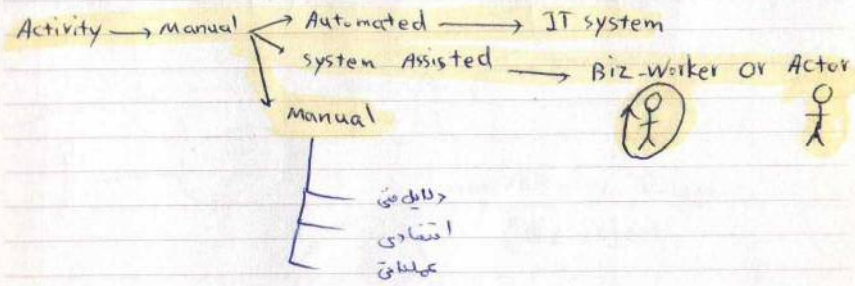 Activity → Manual → Automated → IT system
→ system Assisted → Biz-Worker Or Actor
→ Manual
دلایل فنی
اقتصادی
عملیاتی